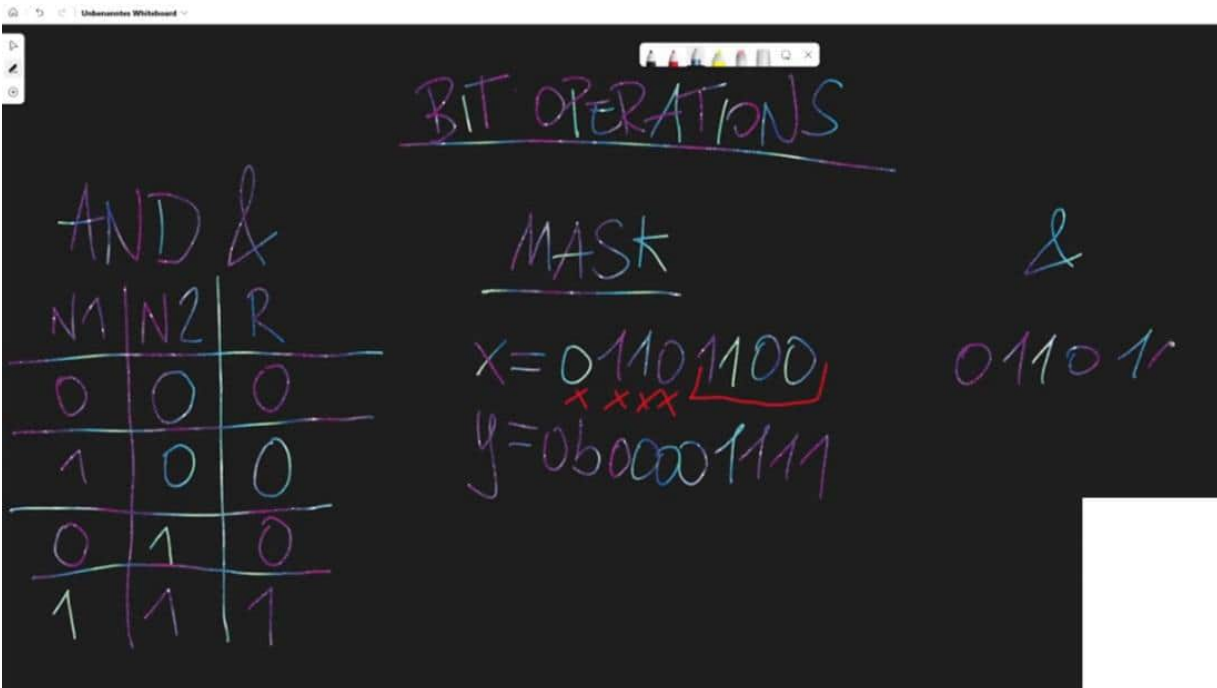 Unbenanntes Whiteboard
BIT OPERATIONS
AND &
N1 N2 R
0 0 0
1 0 0
0 1 0
1 1 1
MASK
x=01101100
x x x x
y=0b00001111
&
01101